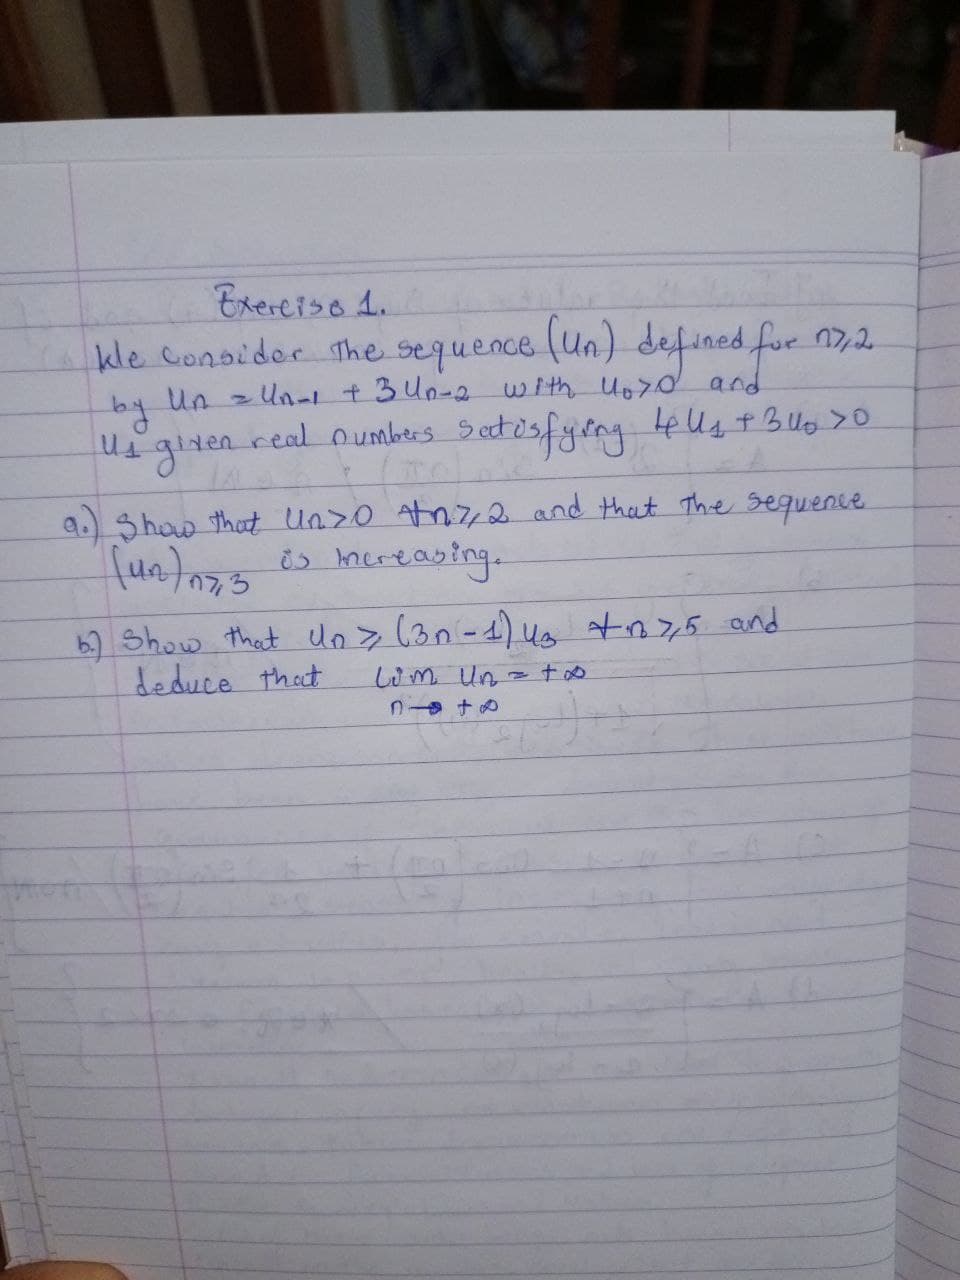 Exercise 1.
We consider The sequence (Un) defined for n≥2
by Un = Un-1 + 3Un-2 with U0>0 and
U1 given real numbers satisfying 4U1 + 3U0 >0
a.) Show that Un>0 ∀n≥2 and that The sequence
(Un)n≥3 is increasing.
b.) Show that Un ≥ (3n-1)U3 ∀n≥5 and
deduce that lim Un = +∞
n→+∞